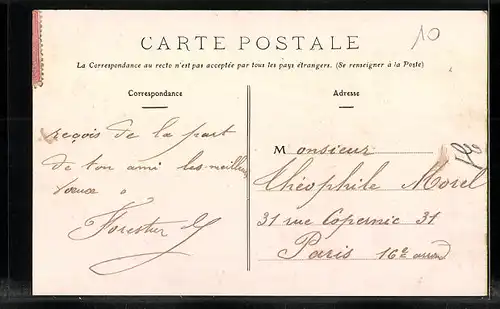 10
CARTE POSTALE
La Correspondance au recto n'est pas acceptée par tous les pays étrangers. (Se renseigner à la Poste)
Correspondance
Adresse
reçois de la part
de ton ami les meilleurs
vœux
Forestier
Monsieur
Théophile Morel
31 rue Copernic 31
Paris 16e arrond